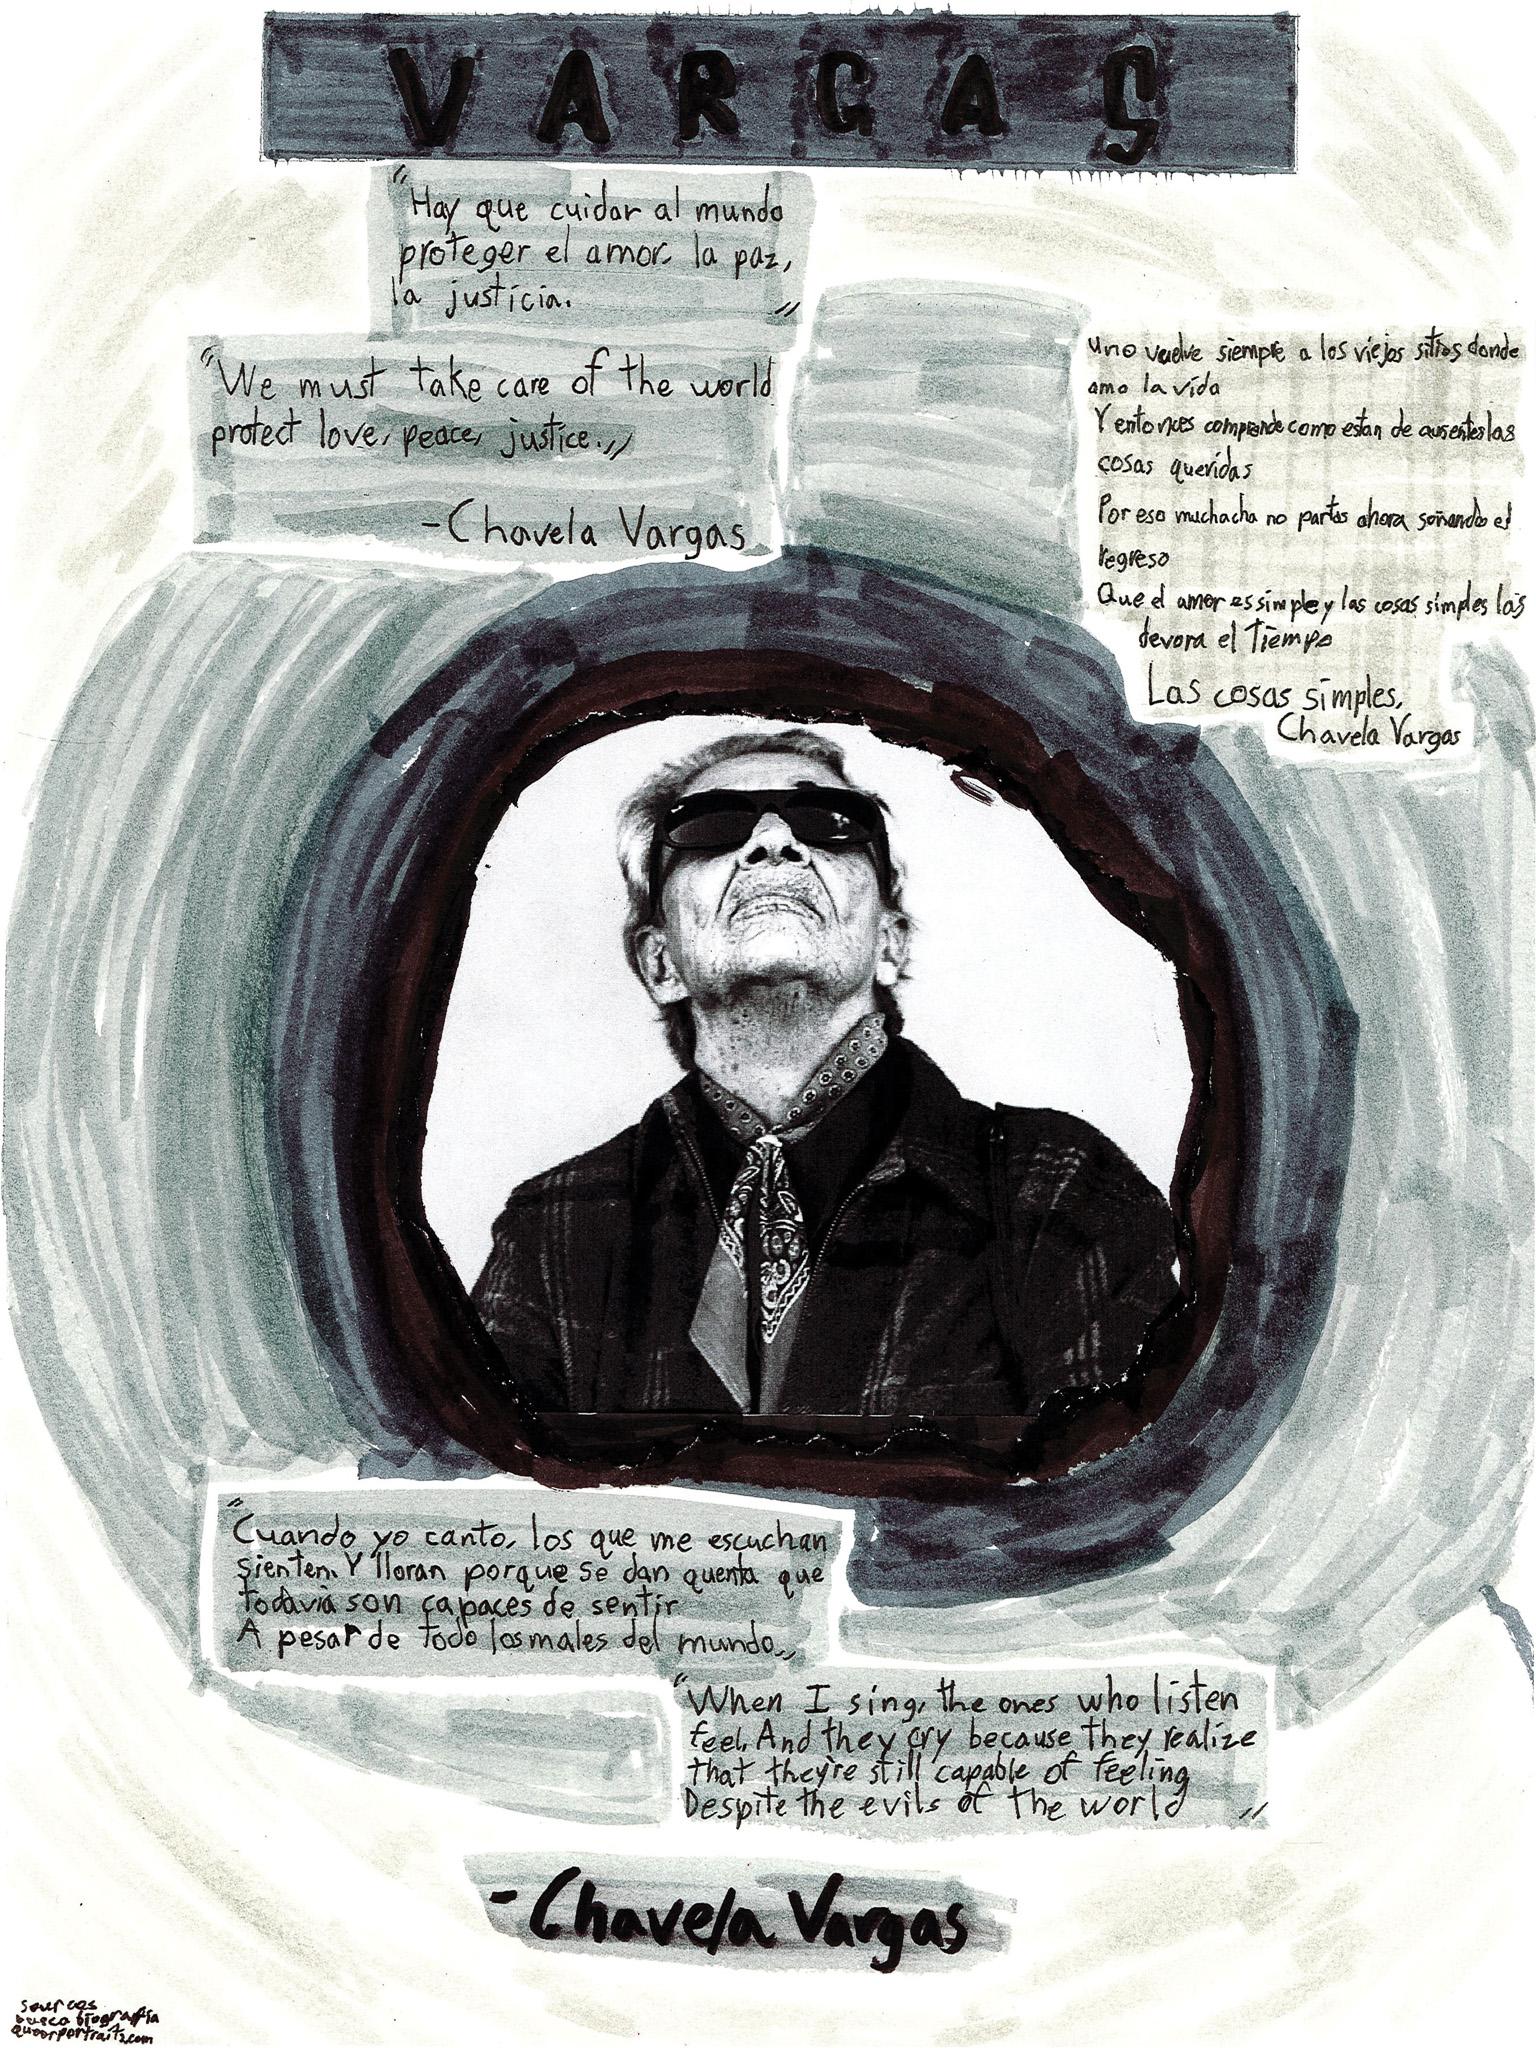 VARGAS
"Hay que cuidar al mundo
proteger el amor, la paz,
la justicia. "
"We must take care of the world
protect love, peace, justice."
-Chavela Vargas
uno vuelve siempre a los viejos sitios donde
amo la vida
Y entonces comprende como estan de ausentes las
cosas queridas
Por eso muchacha no partas ahora soñando el
regreso
Que el amor es simple y las cosas simples las
devora el Tiempo
Las cosas simples,
Chavela Vargas
"Cuando yo canto, los que me escuchan
sienten. Y lloran porque se dan quenta que
todavia son capaces de sentir
A pesar de todo los males del mundo."
"When I sing, the ones who listen
feel. And they cry because they realize
that they're still capable of feeling
Despite the evils of the world "
-Chavela Vargas
sources
busca biografia
queerportraits.com